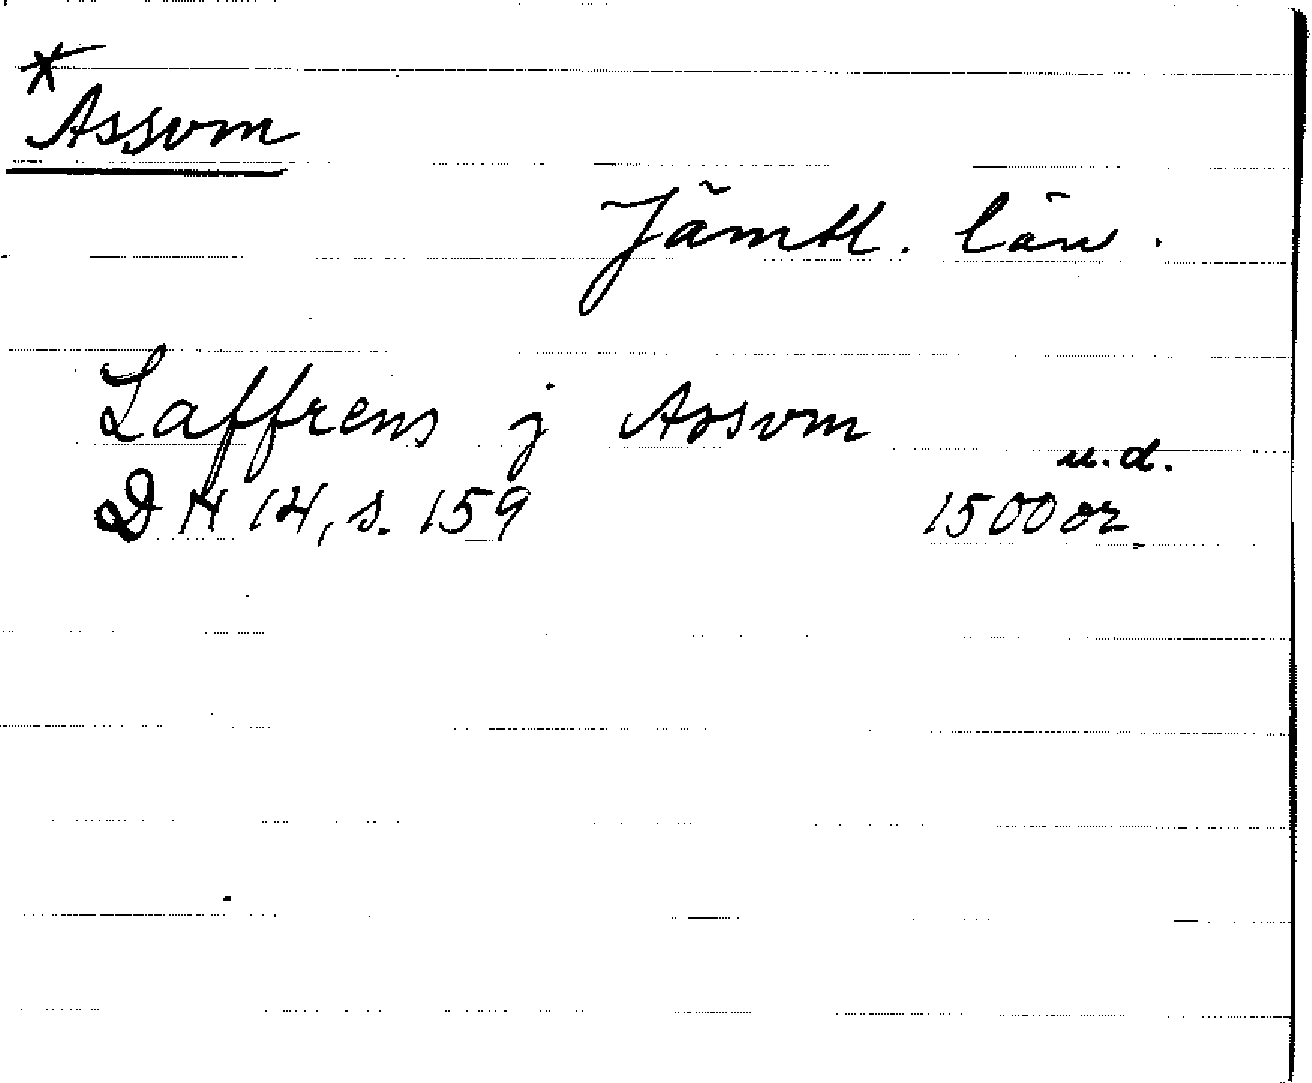 *Assvm
Jämtl. län.
Laffrens j Assvm
u.d.
DN 14, s. 159 1500 or.